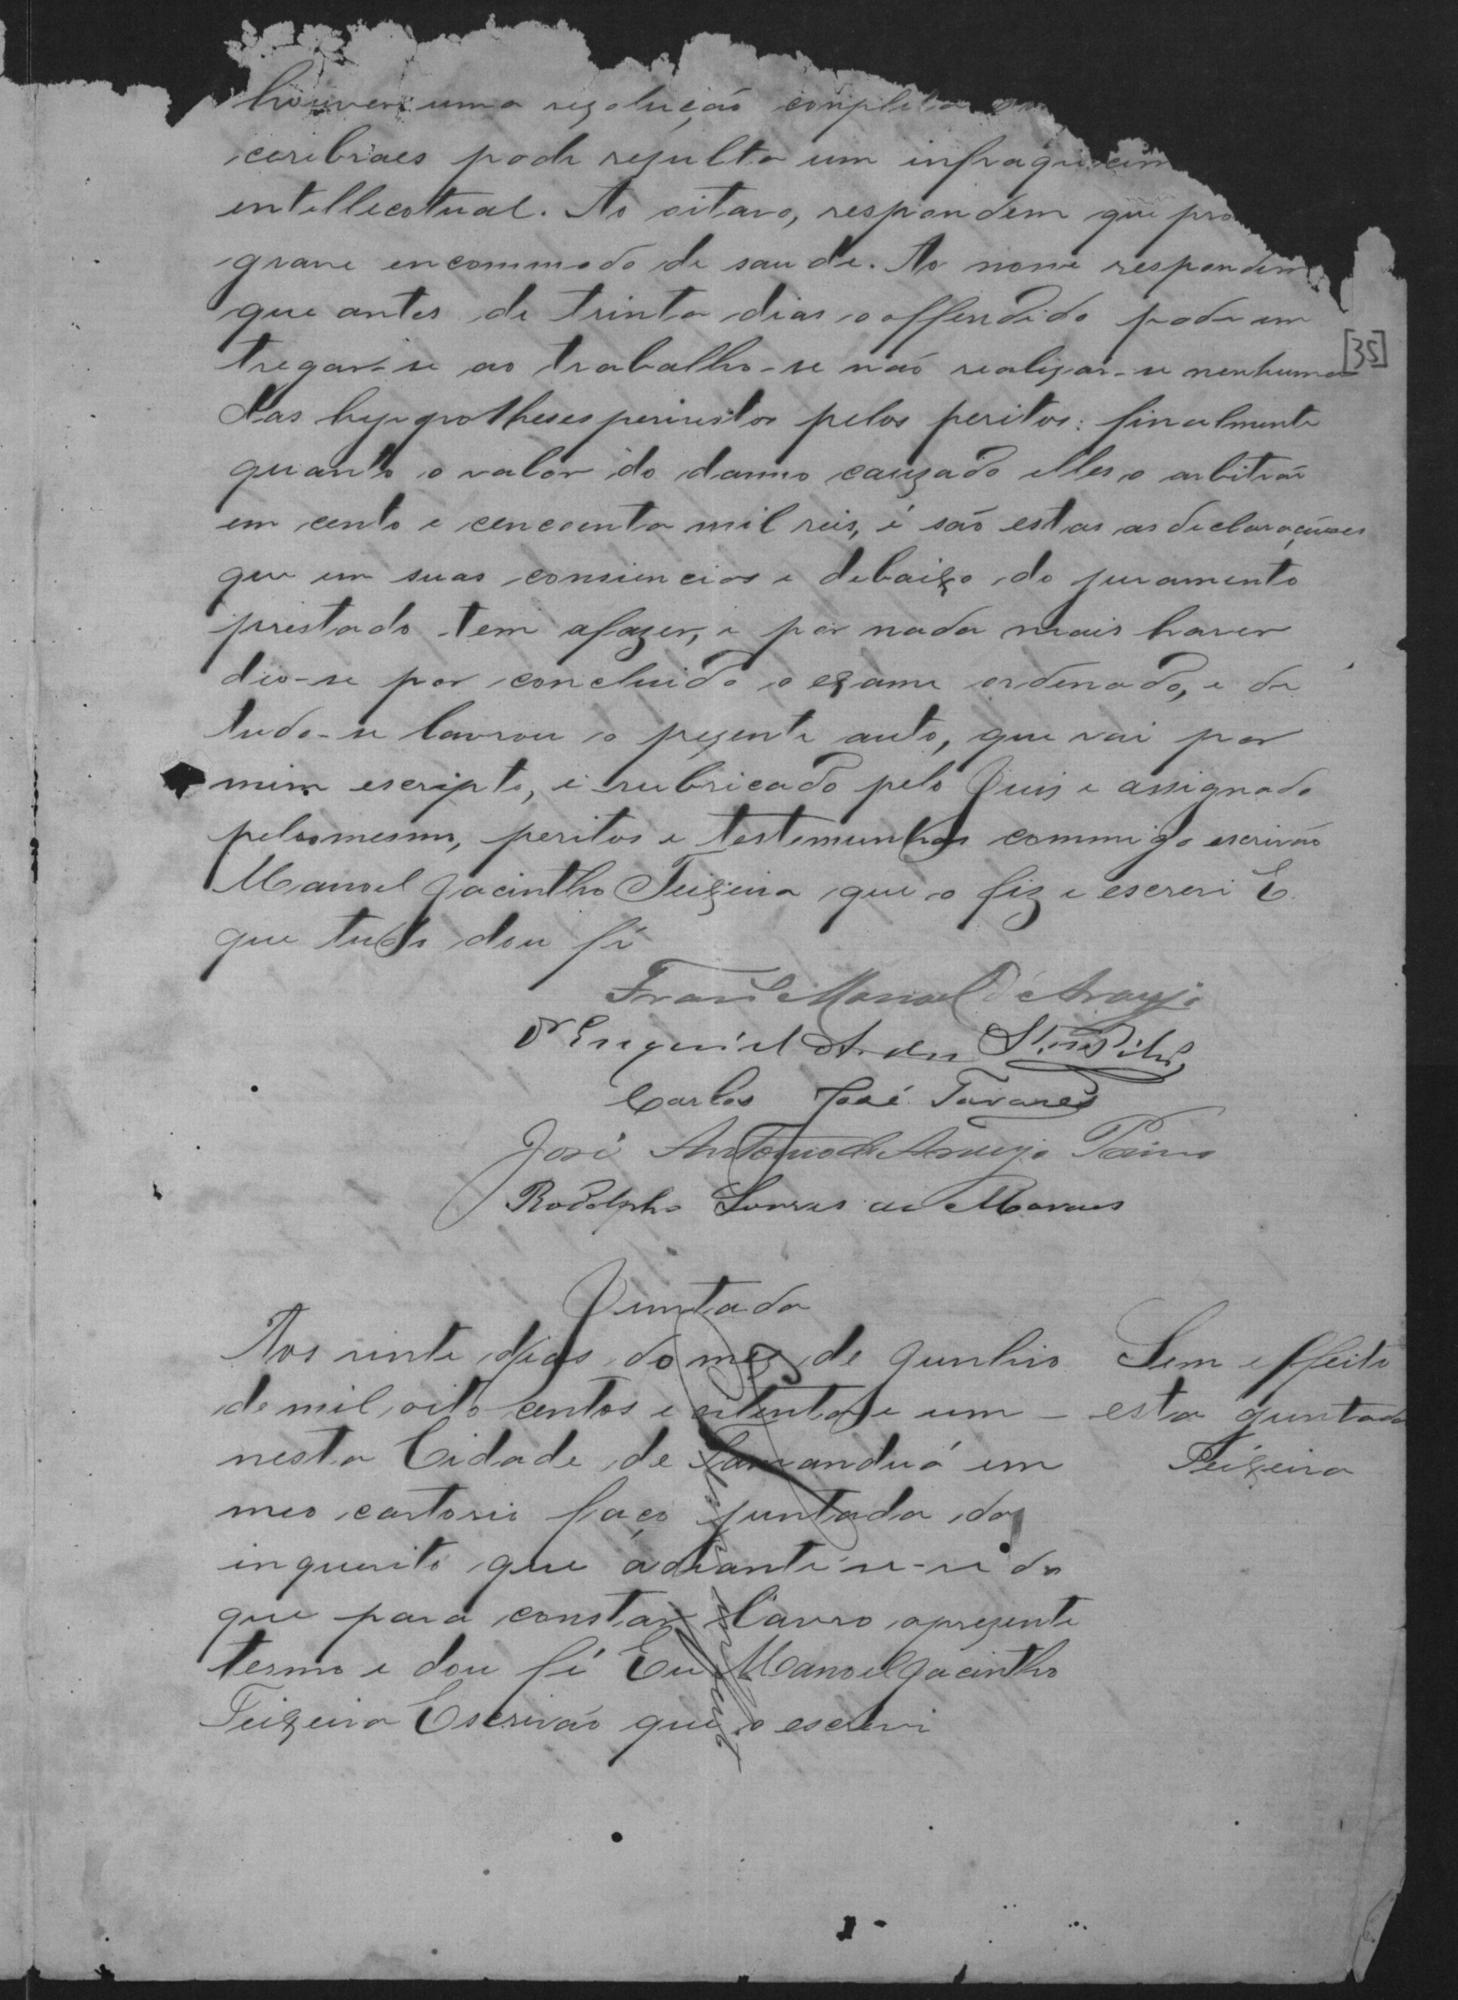 houver uma rezolução completa
cerebraes pode rezulta um infraquecim
entellecotual. Ao oitavo, respondem que pro
grave encommodo de saude. Ao nono respondem
que antes de trinta dias o offendido pode em
[35]
tregar-se ao trabalho-se não realizar-se nenhuma
das hypotheses previstas pelos peritos: finalmente
quanto o valor do damno cauzado elles o arbitrão
em cento e cencoenta mil reis, é são estas as declaraçãoes
que em suas consiencias e debaixo do juramento
prestado tem afazer, e por nada mais haver
deo-se por concluido o exame ordenado, e de
tudo-se lavrou o prezente auto, que vai por
mim escripto, e rubricado pelo Juis e assignado
pelo mesmo, peritos e testemunhas commigo escrivão
Manoel Jacintho Teixeira que o fiz e escrevi E
que tudo dou fé
Franco Manoel d'Araujo
Dr Ezequiel
Carlos José Tavares
José Antonio de Araujo
Rodolpho de Moraes
Juntada
Aos vinte dias do mez de Junhio
de mil oito centos e oitenta e um
nesta Cidade de Tamanduá em
meo cartorio faço juntada do
inquerito que adiante-se-ve do
que para constar lavro oprezente
termo e dou fé Eu Manoel Jacintho
Teixeira Escrivão que o escrevi
Sem effeito
esta juntada
Teixeira